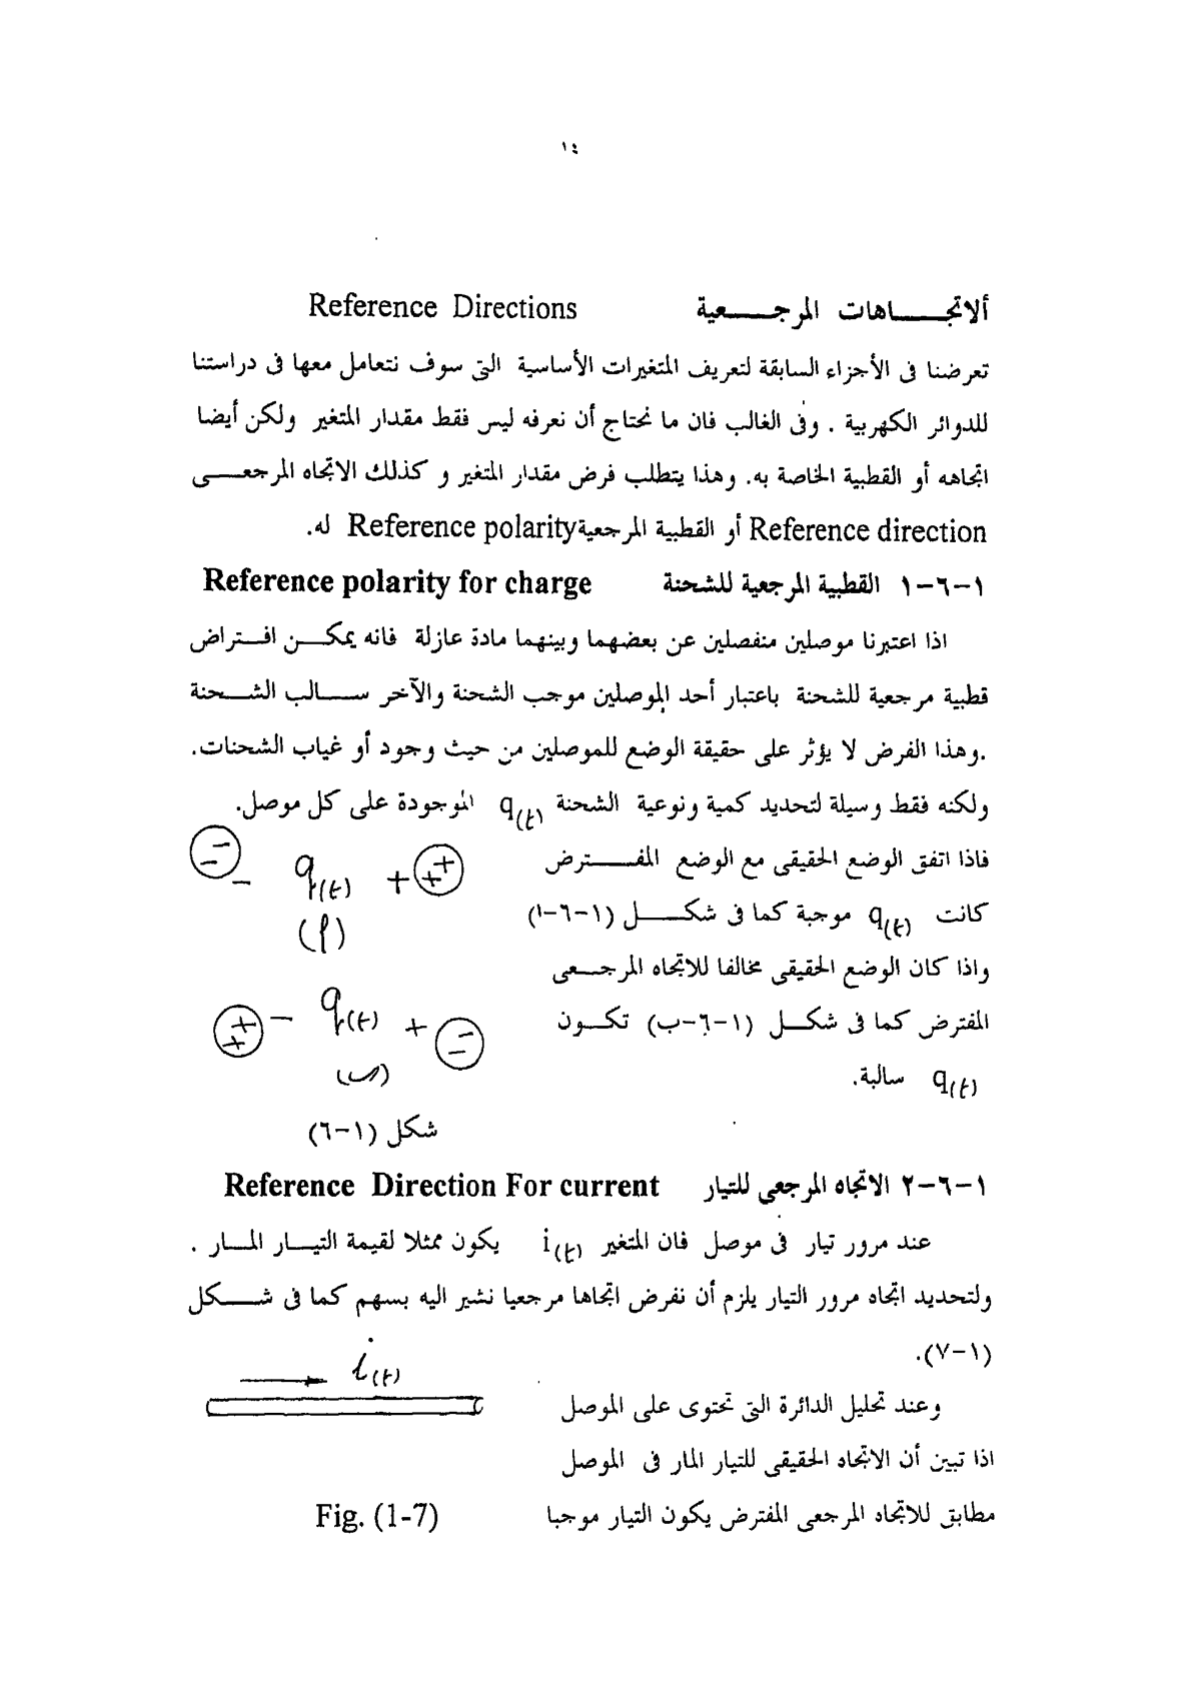 ١٤
ألاتجـــاهات المرجــعية Reference Directions
تعرضنا فى الأجزاء السابقة لتعريف المتغيرات الأساسية التى سوف نتعامل معها فى دراستنا
للدوائر الكهربية . وفى الغالب فان ما نحتاج أن نعرفه ليس فقط مقدار المتغير ولكن أيضا
اتجاهه أو القطبية الخاصة به. وهذا يتطلب فرض مقدار المتغير و كذلك الاتجاه المرجعــى
Reference direction أو القطبية المرجعية Reference polarity له.
١-٦-١ القطبية المرجعية للشحنة Reference polarity for charge
اذا اعتبرنا موصلين منفصلين عن بعضهما وبينهما مادة عازلة فانه يمكــن افــتراض
قطبية مرجعية للشحنة باعتبار أحد الموصلين موجب الشحنة والآخر ســالب الشــحنة
.وهذا الفرض لا يؤثر على حقيقة الوضع للموصلين من حيث وجود أو غياب الشحنات.
ولكنه فقط وسيلة لتحديد كمية ونوعية الشحنة q(t) الموجودة على كل موصل.
فاذا اتفق الوضع الحقيقى مع الوضع المفـــترض
كانت q(t) موجبة كما فى شكـــل (١-٦-١)
واذا كان الوضع الحقيقى مخالفا للاتجاه المرجــعى
المفترض كما فى شكــل (١-٦-ب) تكــون
q(t) سالبة.
− − − q(t) + + +
(أ)
+ + − q(t) + − −
(ب)
شكل (١-٦)
١-٦-٢ الاتجاه المرجعى للتيار Reference Direction For current
عند مرور تيار فى موصل فان المتغير i(t) يكون ممثلا لقيمة التيــار المــار .
ولتحديد اتجاه مرور التيار يلزم أن نفرض اتجاها مرجعيا نشير اليه بسهم كما فى شـــكل
(١-٧).
i(t)
وعند تحليل الدائرة التى تحتوى على الموصل
اذا تبين أن الاتجاه الحقيقى للتيار المار فى الموصل
مطابق للاتجاه المرجعى المفترض يكون التيار موجبا
Fig. (1-7)